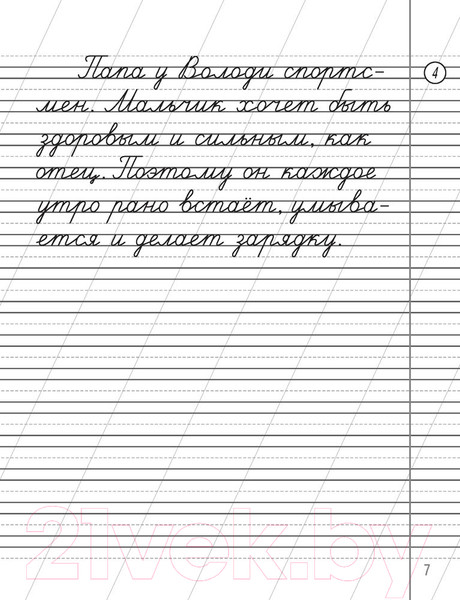 Папа у Володи спортс-
4
мен. Мальчик хочет быть
здоровым и сильным, как
отец. Поэтому он каждое
утро рано встаёт, умыва-
ется и делает зарядку.
21vek.by
7